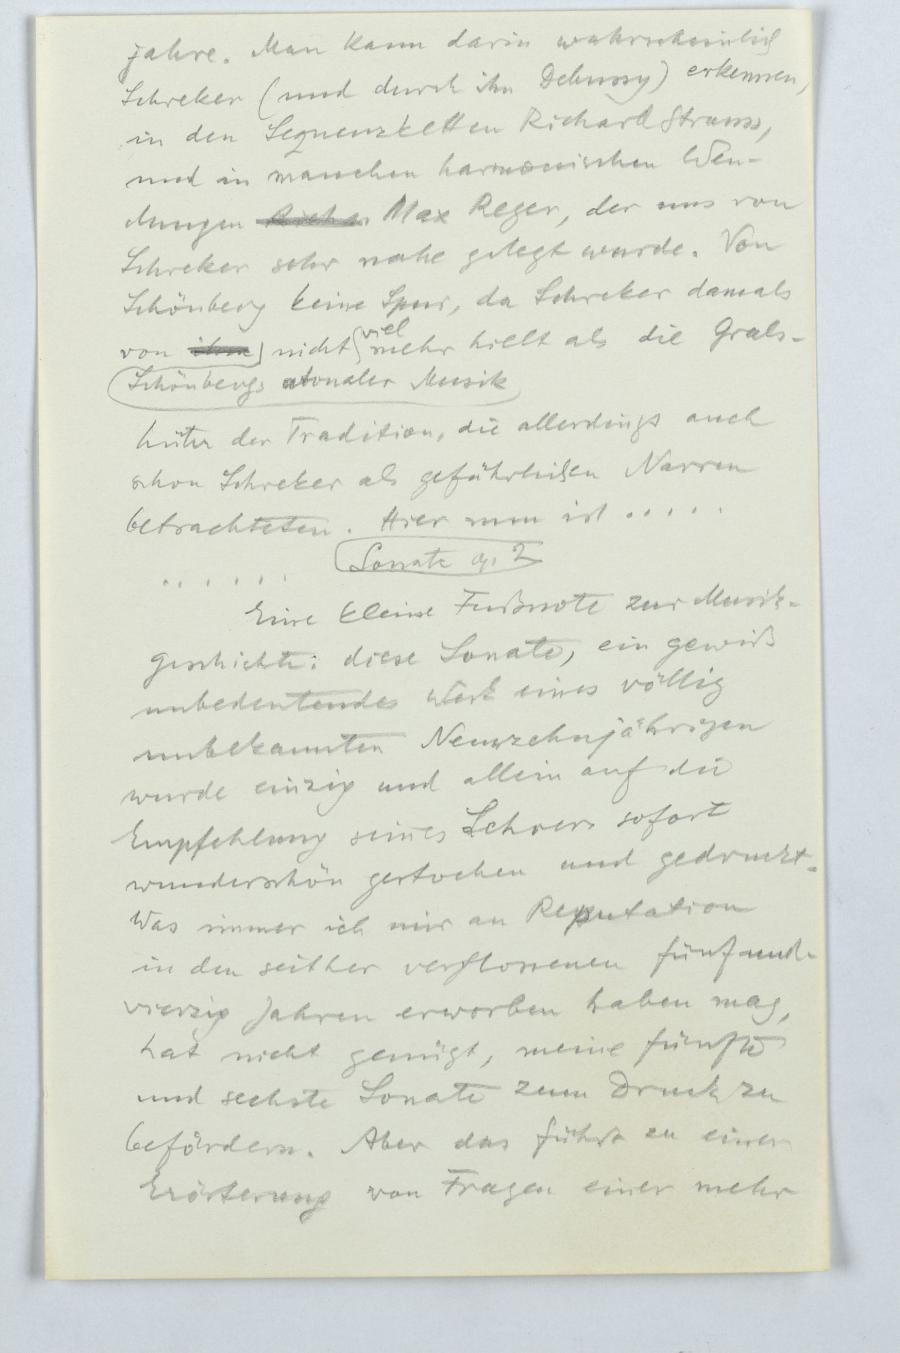 jahre. Man kann darin wahrscheinlich
Schreker (und durch ihn Debussy) erkennen,
in den Sequenzketten Richard Strauss,
und in manchen harmonischen Wen-
dungen Max Reger, der uns von
Schreker sehr nahe gelegt wurde. Von
Schönberg keine Spur, da Schreker damals
von nicht viel mehr hielt als die Grals-
Schönbergs atonaler Musik
hüter der Tradition, die allerdings auch
schon Schreker als gefährlichen Narren
betrachteten. Hier nun ist .....
...... Sonate op. 2
Eine kleine Fußnote zur Musik-
geschichte: diese Sonate, ein gewiß
unbedeutendes Werk eines völlig
unbekannten Neunzehnjährigen
wurde einzig und allein auf die
Empfehlung seines Lehrers sofort
wunderschön gestochen und gedruckt.
Was immer ich mir an Reputation
in den seither verflossenen fünfund-
vierzig Jahren erworben haben mag,
hat nicht genügt, meine fünfte
und sechste Sonate zum Druck zu
befördern. Aber das führt zu einer
Erörterung von Fragen einer mehr